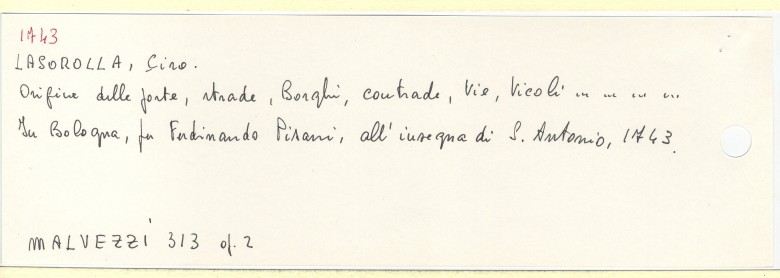 1743
LASOROLLA, Ciro.
Origine delle porte, strade, Borghi, contrade, Vie, Vicoli ... ... ... ...
In Bologna, per Ferdinando Pisarri, all'insegna di S. Antonio, 1743.
MALVEZZI 313 op. 2